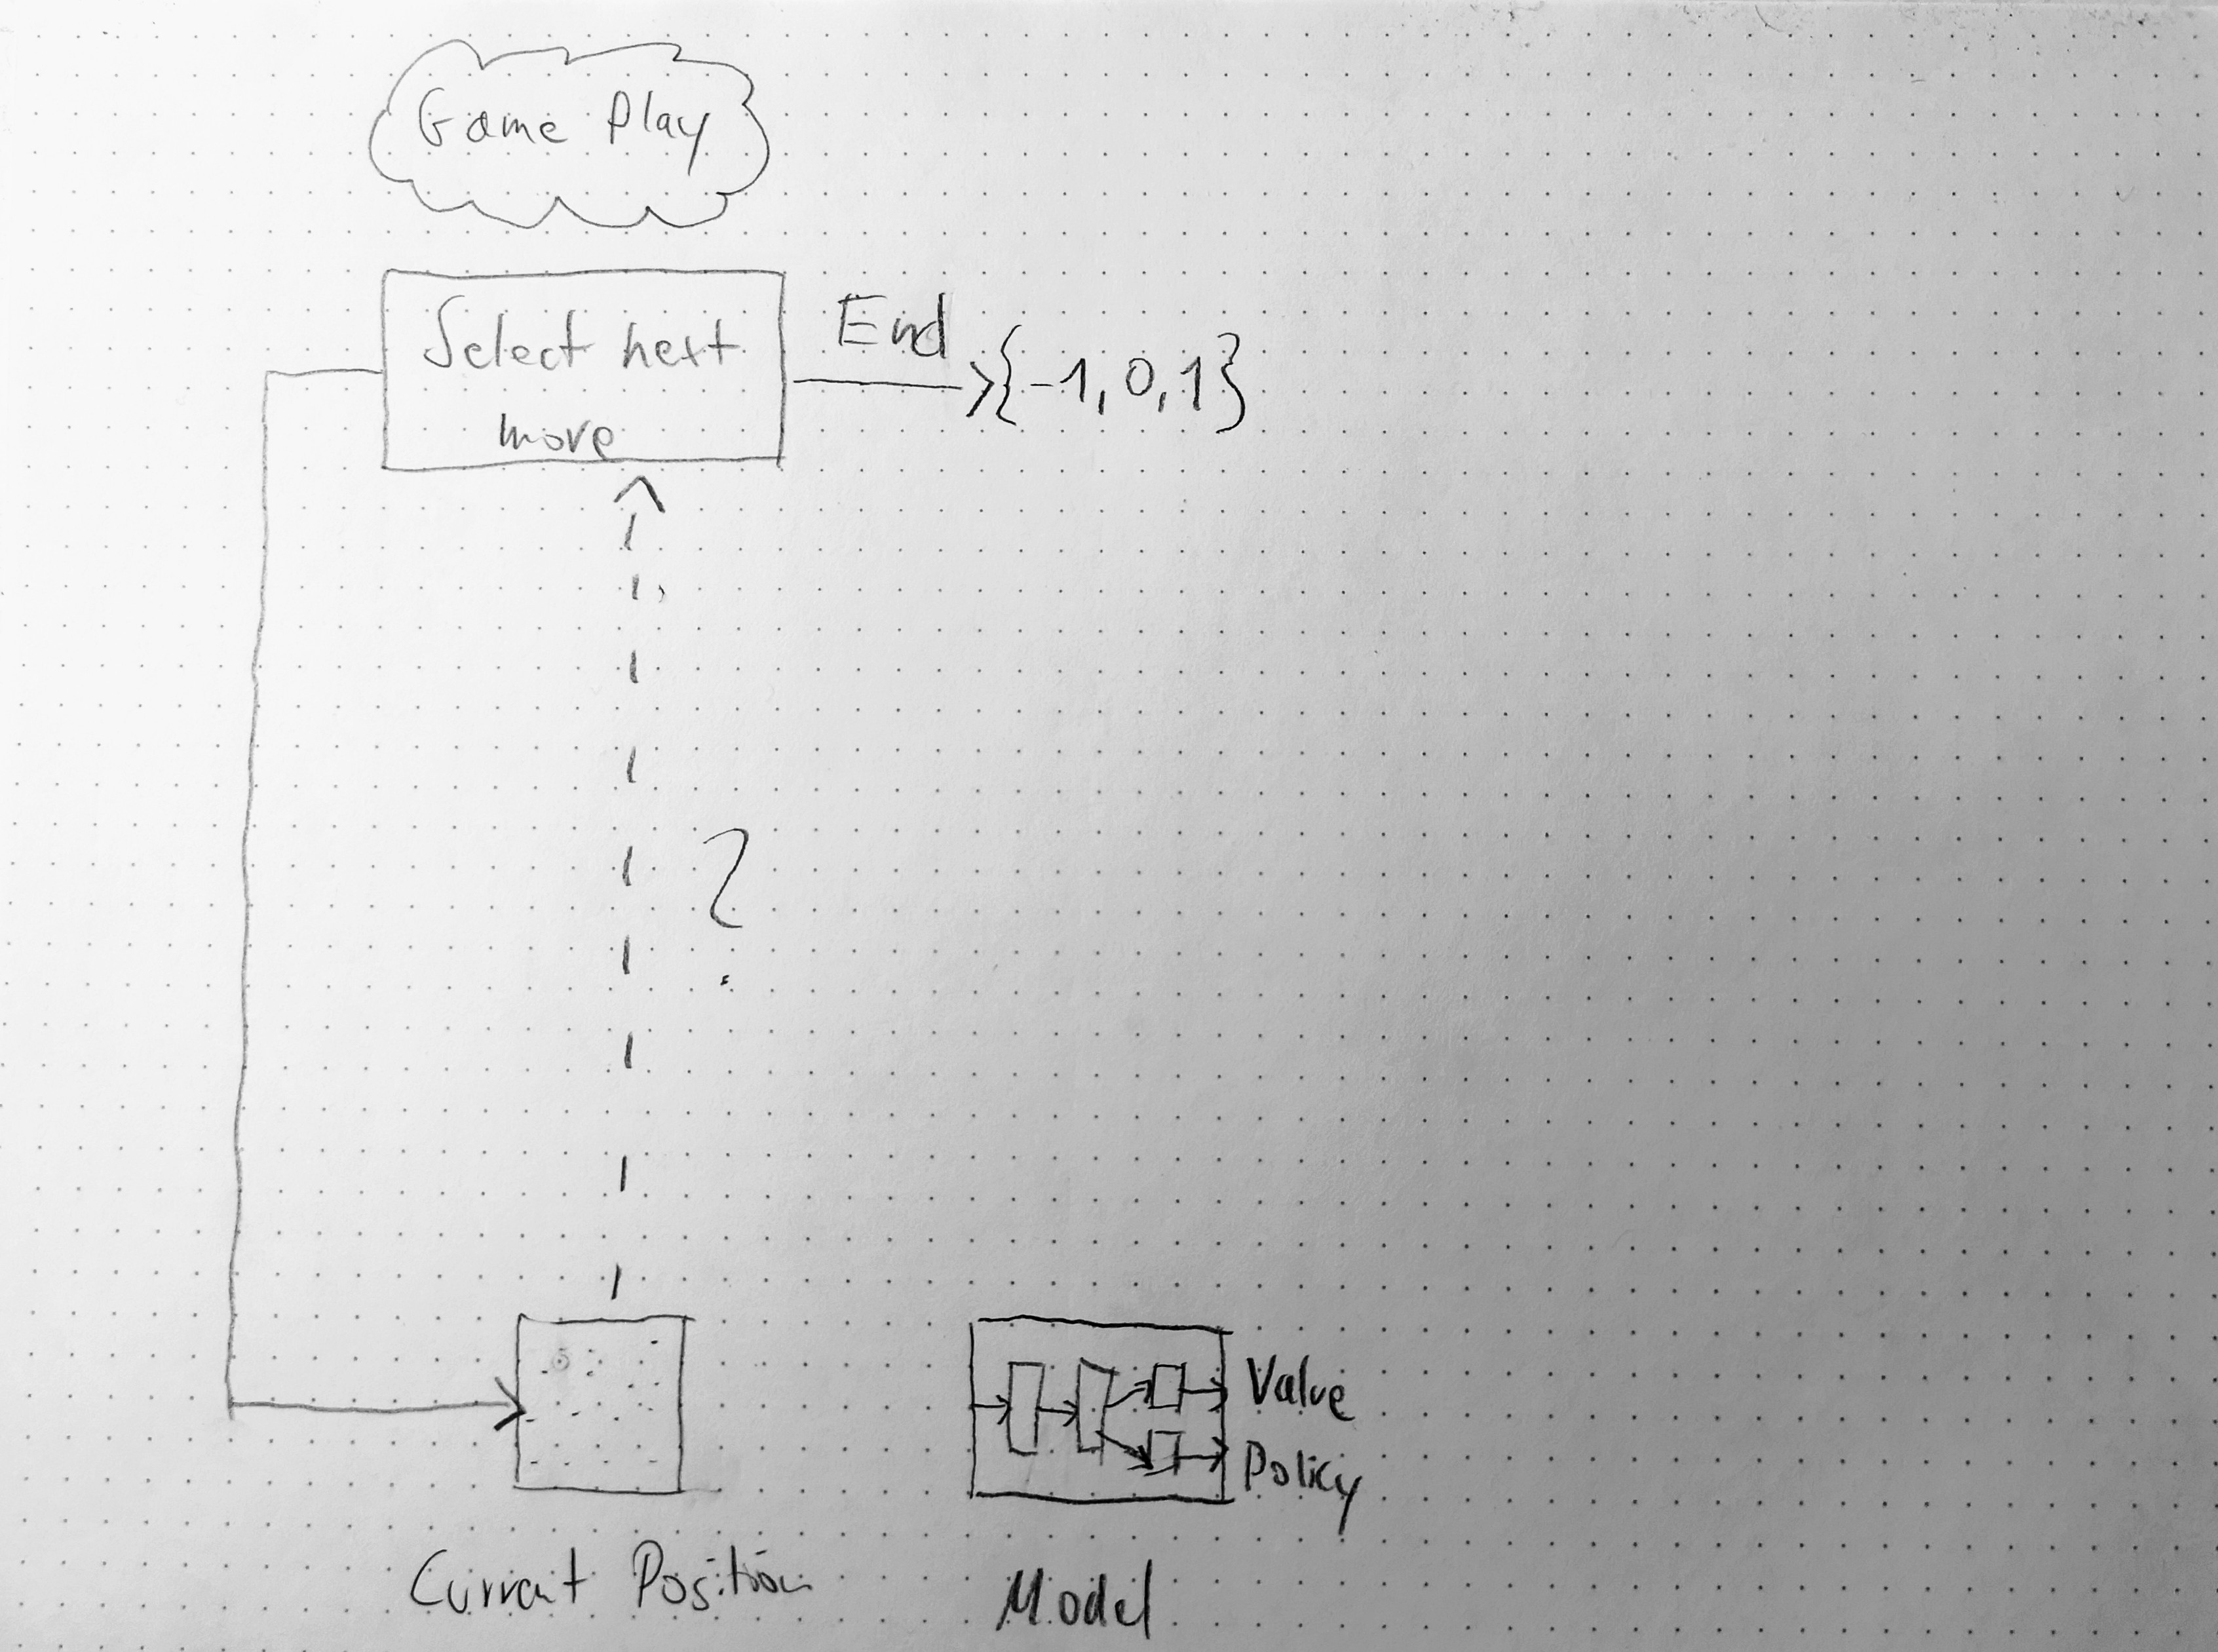 Game Play
Select next
move
End
{-1, 0, 1}
?
Value
Policy
Current Position
Model